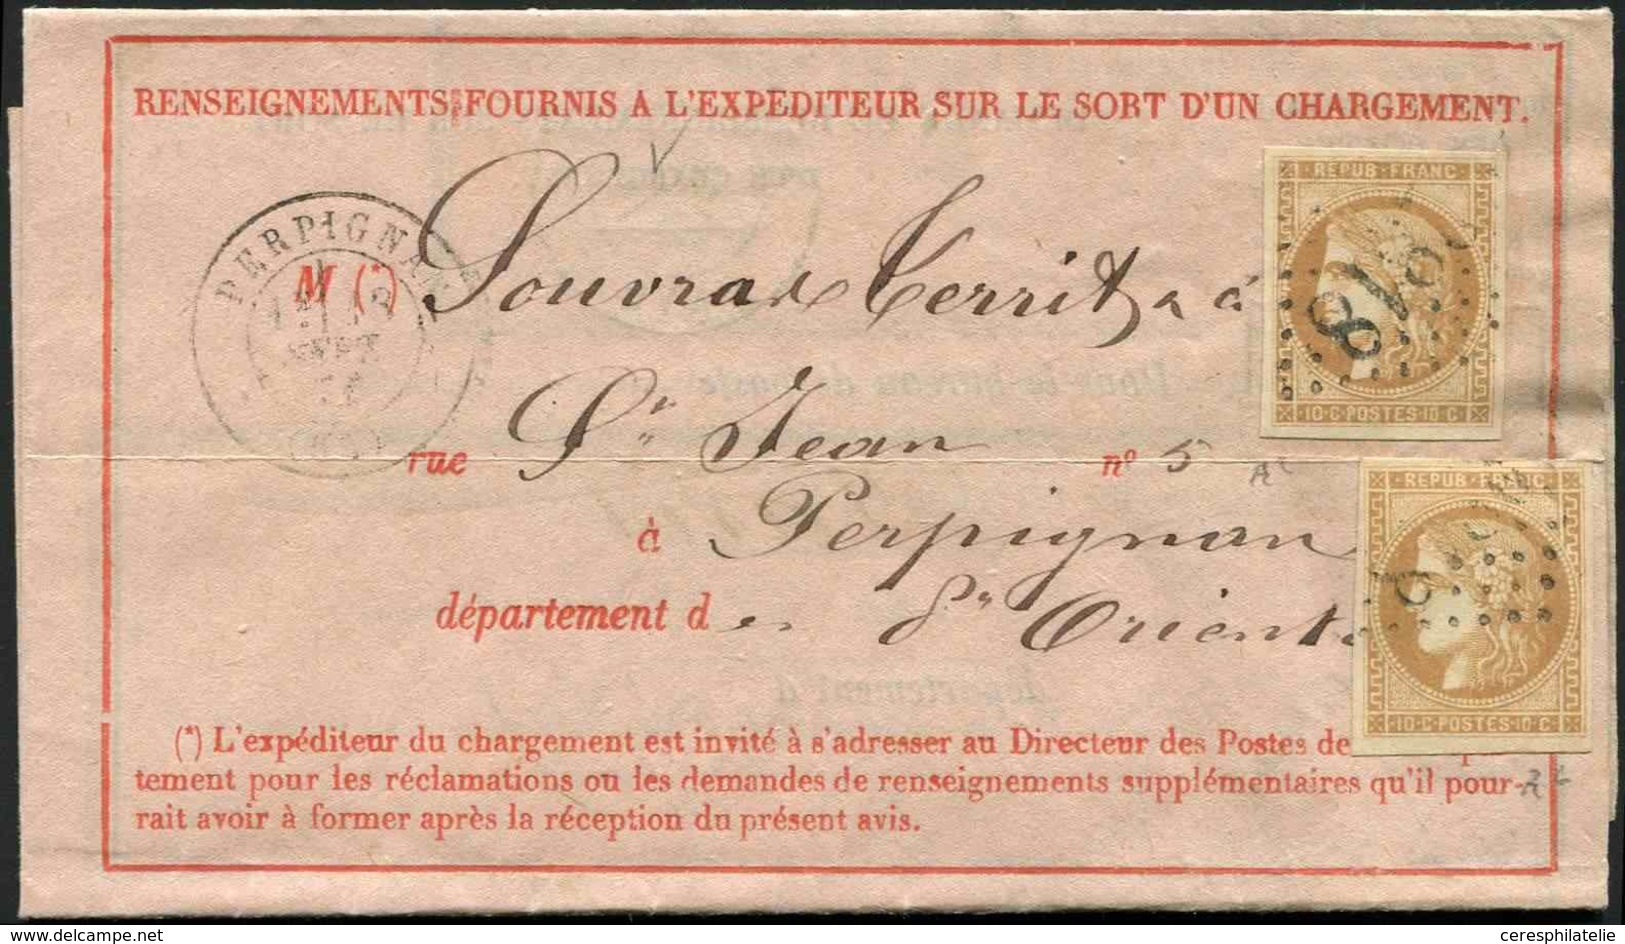 RENSEIGNEMENTS FOURNIS A L'EXPEDITEUR SUR LE SORT D'UN CHARGEMENT.
REPUB·FRANC
10·C·POSTES·10·C
PERPIGNAN
SEPT
M (*) Territ à
rue St Jean n° 5
à Perpignan
département d es Pes Orient
REPUB·FRANC
10·C·POSTES·10·C
(*) L'expéditeur du chargement est invité à s'adresser au Directeur des Postes de
tement pour les réclamations ou les demandes de renseignements supplémentaires qu'il pour-
rait avoir à former après la réception du présent avis.
www.delcampe.net
ceresphilatelie